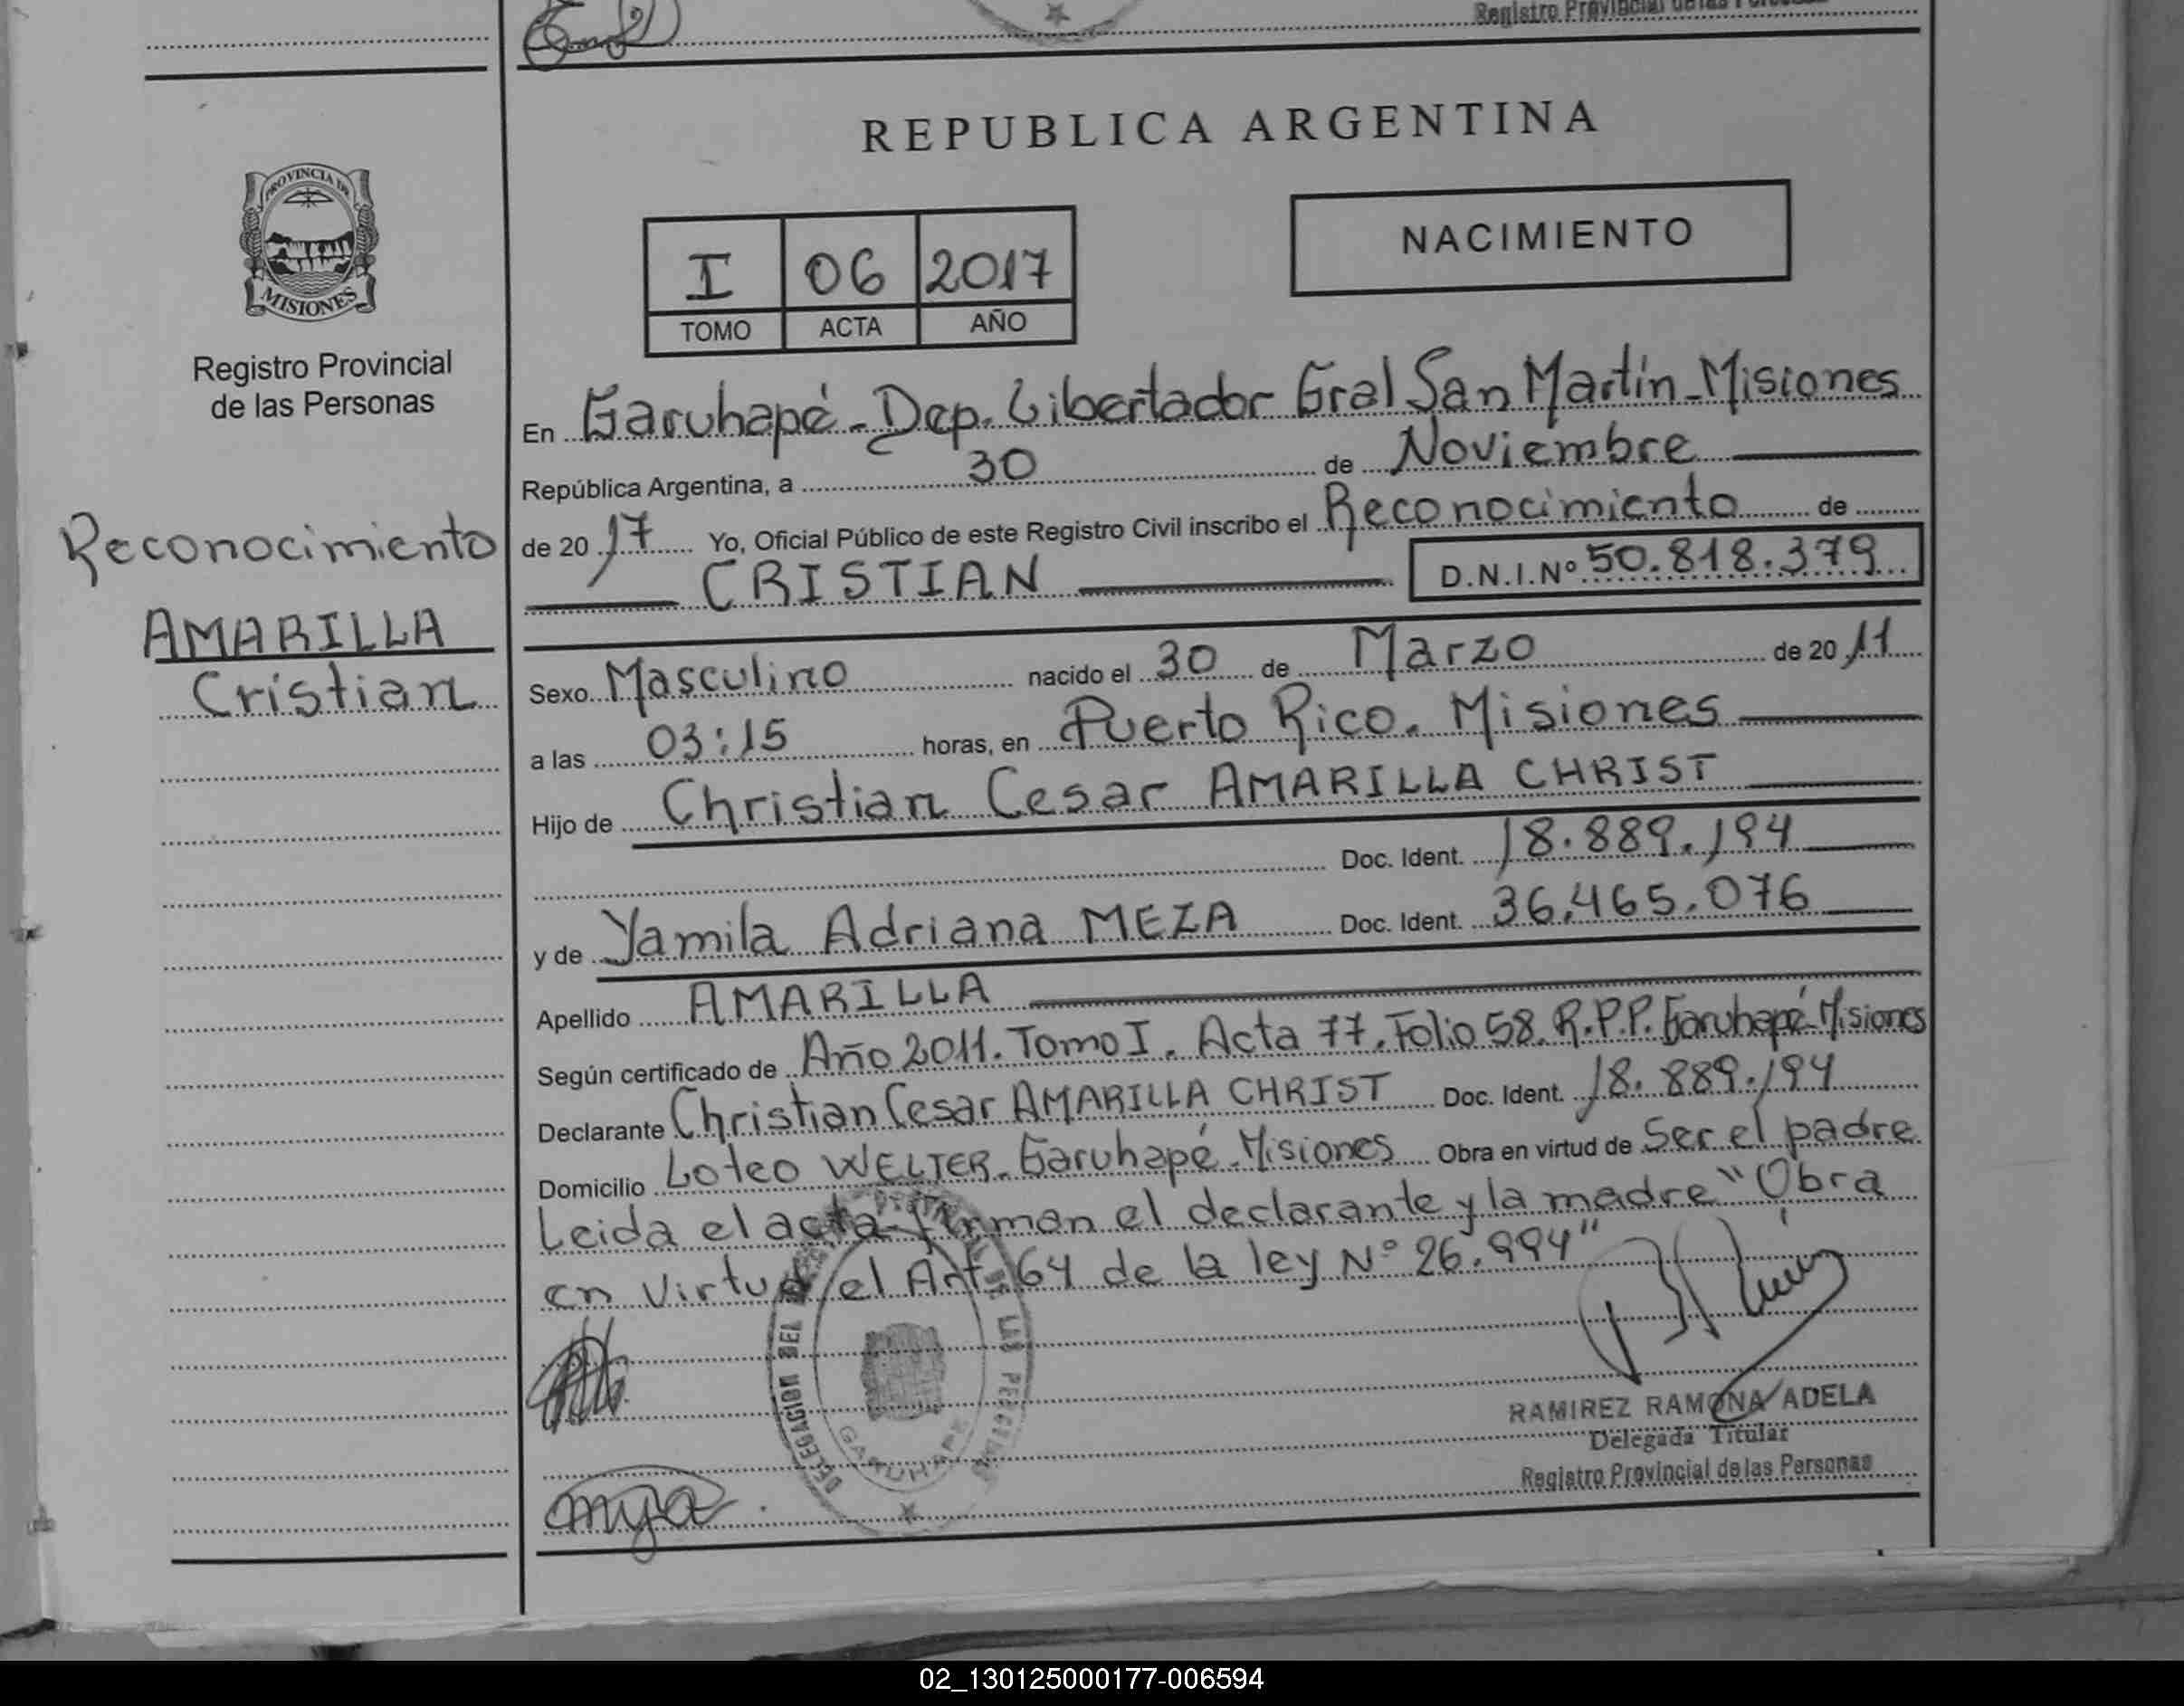 Registro Provincial de las Personas
REPUBLICA ARGENTINA
PROVINCIA DE
MISIONES
Registro Provincial
de las Personas
Reconocimiento
AMARILLA
Cristian
I 06 2017
TOMO ACTA AÑO
NACIMIENTO
En Garuhapé - Dep. Libertador Gral San Martín - Misiones
República Argentina, a 30 de Noviembre
de 2017 Yo, Oficial Público de este Registro Civil inscribo el Reconocimiento de
CRISTIAN D.N.I.Nº 50.818.379
Sexo Masculino nacido el 30 de Marzo de 2011
a las 03:15 horas, en Puerto Rico. Misiones
Hijo de Christian Cesar AMARILLA CHRIST
Doc. Ident. 18.889.194
y de Yamila Adriana MEZA Doc. Ident. 36.465.076
Apellido AMARILLA
Según certificado de Año 2011. Tomo I. Acta 77. Folio 58. R.P.P. Garuhapé-Misiones
Declarante Christian Cesar AMARILLA CHRIST Doc. Ident. 18.889.194
Domicilio Loteo WELTER. Garuhapé-Misiones Obra en virtud de Ser el padre
Leida el acta firman el declarante y la madre "Obra
en virtud el Art 64 de la ley Nº 26.994"
DELEGACION DEL DE LAS PERSONAS
GARUHAPE
RAMIREZ RAMONA ADELA
Delegada Titular
Registro Provincial de las Personas
02_130125000177-006594